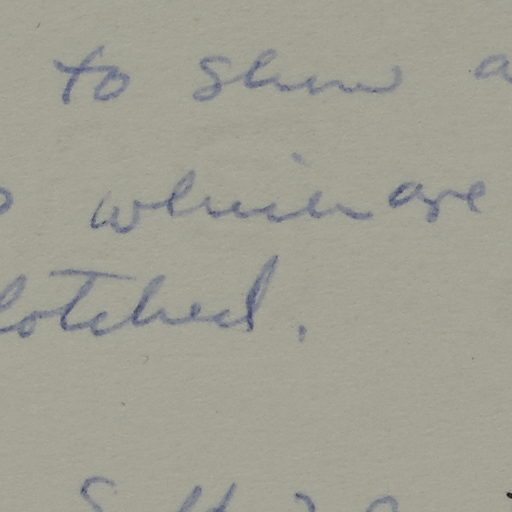 to show a
which are
lotched.